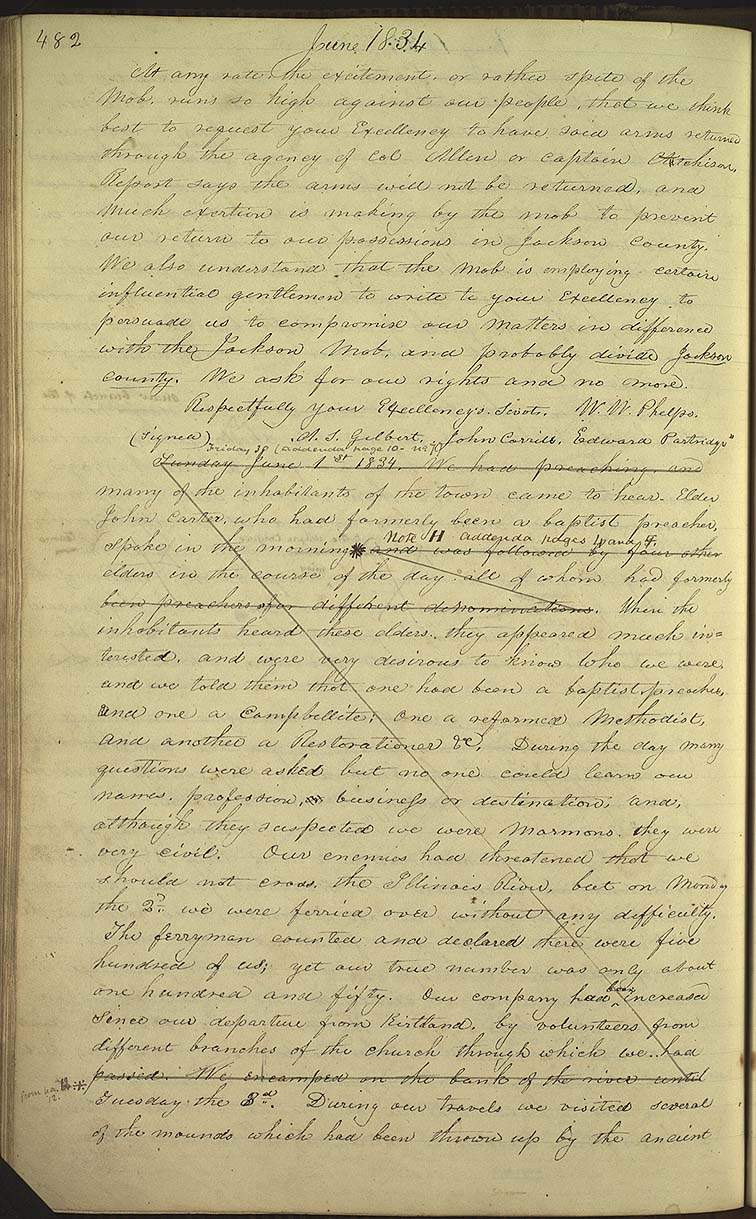 482
June 1834
At any rate the excitement, or rather spite of the
Mob, runs so high against our people, that we think
best to request your Excellency to have said arms returned
through the agency of Col Allen or captain Atchison,
Report says the arms will not be returned, and
much exertion is making by the mob to prevent
our return to our possessions in Jackson county.
We also understand that the Mob is employing certain
influential gentlemen to write to your Excellency to
persuade us to compromise our matters in difference
with the Jackson Mob, and probably divide Jackson
county. We ask for our rights and no more.
Respectfully your Excellency's. Servts. W. W. Phelps.
(Signed) A. S. Gilbert, John Corrill, Edward Partridge"
Friday 30 (addenda page 10-
Sunday June 1st 1834. We had preaching, and
many of the inhabitants of the town came to hear. Elder
John Carter, who had formerly been a baptist preacher,
Note H addenda pages 4 and
spoke in the morning * and was followed by four other
elders in the course of the day all of whom had formerly
been preachers for different denominations. When the
inhabitants heard these elders they appeared much in=
terested, and were very desirous to know who we were,
and we told them that one had been a baptist preacher,
and one a Campbellite; one a reformed Methodist,
and another a Restorationer &c. During the day many
questions were asked but no one could learn our
names, profession, business or destination; and,
although they suspected we were Mormons they were
very civil. Our enemies had threatened that we
should not cross the Illinois River, but on Monday
the 2d. we were ferried over without any difficulty.
The ferryman counted and declared there were five
hundred of us; yet our true number was only about
one hundred and fifty. Our company had been increased
since our departure from Kirtland, by volunteers from
different branches of the church through which we had
passed. We encamped on the bank of the river until
from
12. *
Tuesday the 3rd. During our travels we visited several
of the mounds which had been thrown up by the ancient